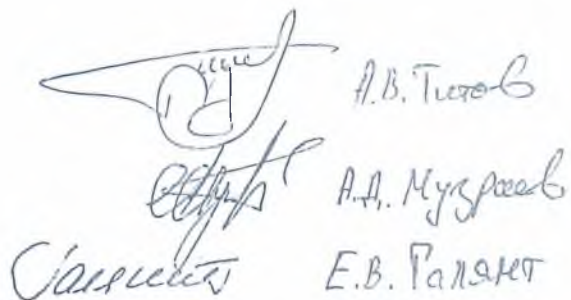 А.В. Титов
А.Д. Музраев
Е.В. Галянт